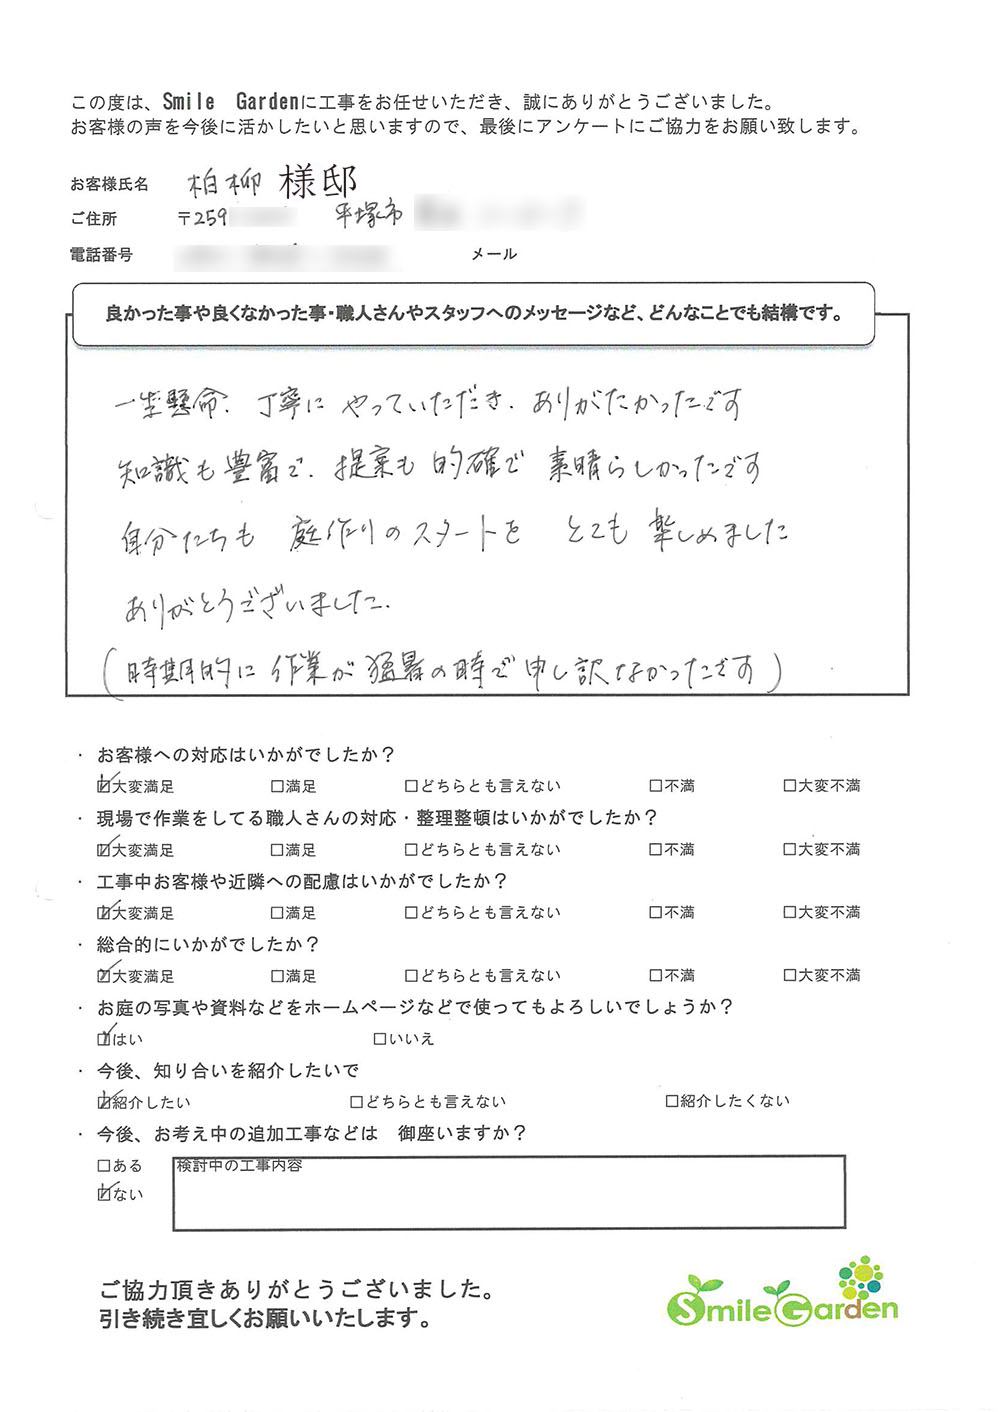 この度は、Smile Gardenに工事をお任せいただき、誠にありがとうございました。
お客様の声を今後に活かしたいと思いますので、最後にアンケートにご協力をお願い致します。
お客様氏名 柏柳 様邸
ご住所 〒259 平塚市
電話番号 メール
良かった事や良くなかった事・職人さんやスタッフへのメッセージなど、どんなことでも結構です。
一生懸命、丁寧に やっていただき、ありがたかったです
知識も豊富で、提案も的確で 素晴らしかったです
自分たちも 庭作りのスタートを とても 楽しめました
ありがとうございました。
(時期的に 作業が 猛暑の時で 申し訳なかったです)
・ お客様への対応はいかがでしたか？
☑大変満足 □満足 □どちらとも言えない □不満 □大変不満
・ 現場で作業をしてる職人さんの対応・整理整頓はいかがでしたか？
☑大変満足 □満足 □どちらとも言えない □不満 □大変不満
・ 工事中お客様や近隣への配慮はいかがでしたか？
☑大変満足 □満足 □どちらとも言えない □不満 □大変不満
・ 総合的にいかがでしたか？
☑大変満足 □満足 □どちらとも言えない □不満 □大変不満
・ お庭の写真や資料などをホームページなどで使ってもよろしいでしょうか？
☑はい □いいえ
・ 今後、知り合いを紹介したいで
☑紹介したい □どちらとも言えない □紹介したくない
・ 今後、お考え中の追加工事などは 御座いますか？
□ある 検討中の工事内容
☑ない
ご協力頂きありがとうございました。
引き続き宜しくお願いいたします。
Smile Garden